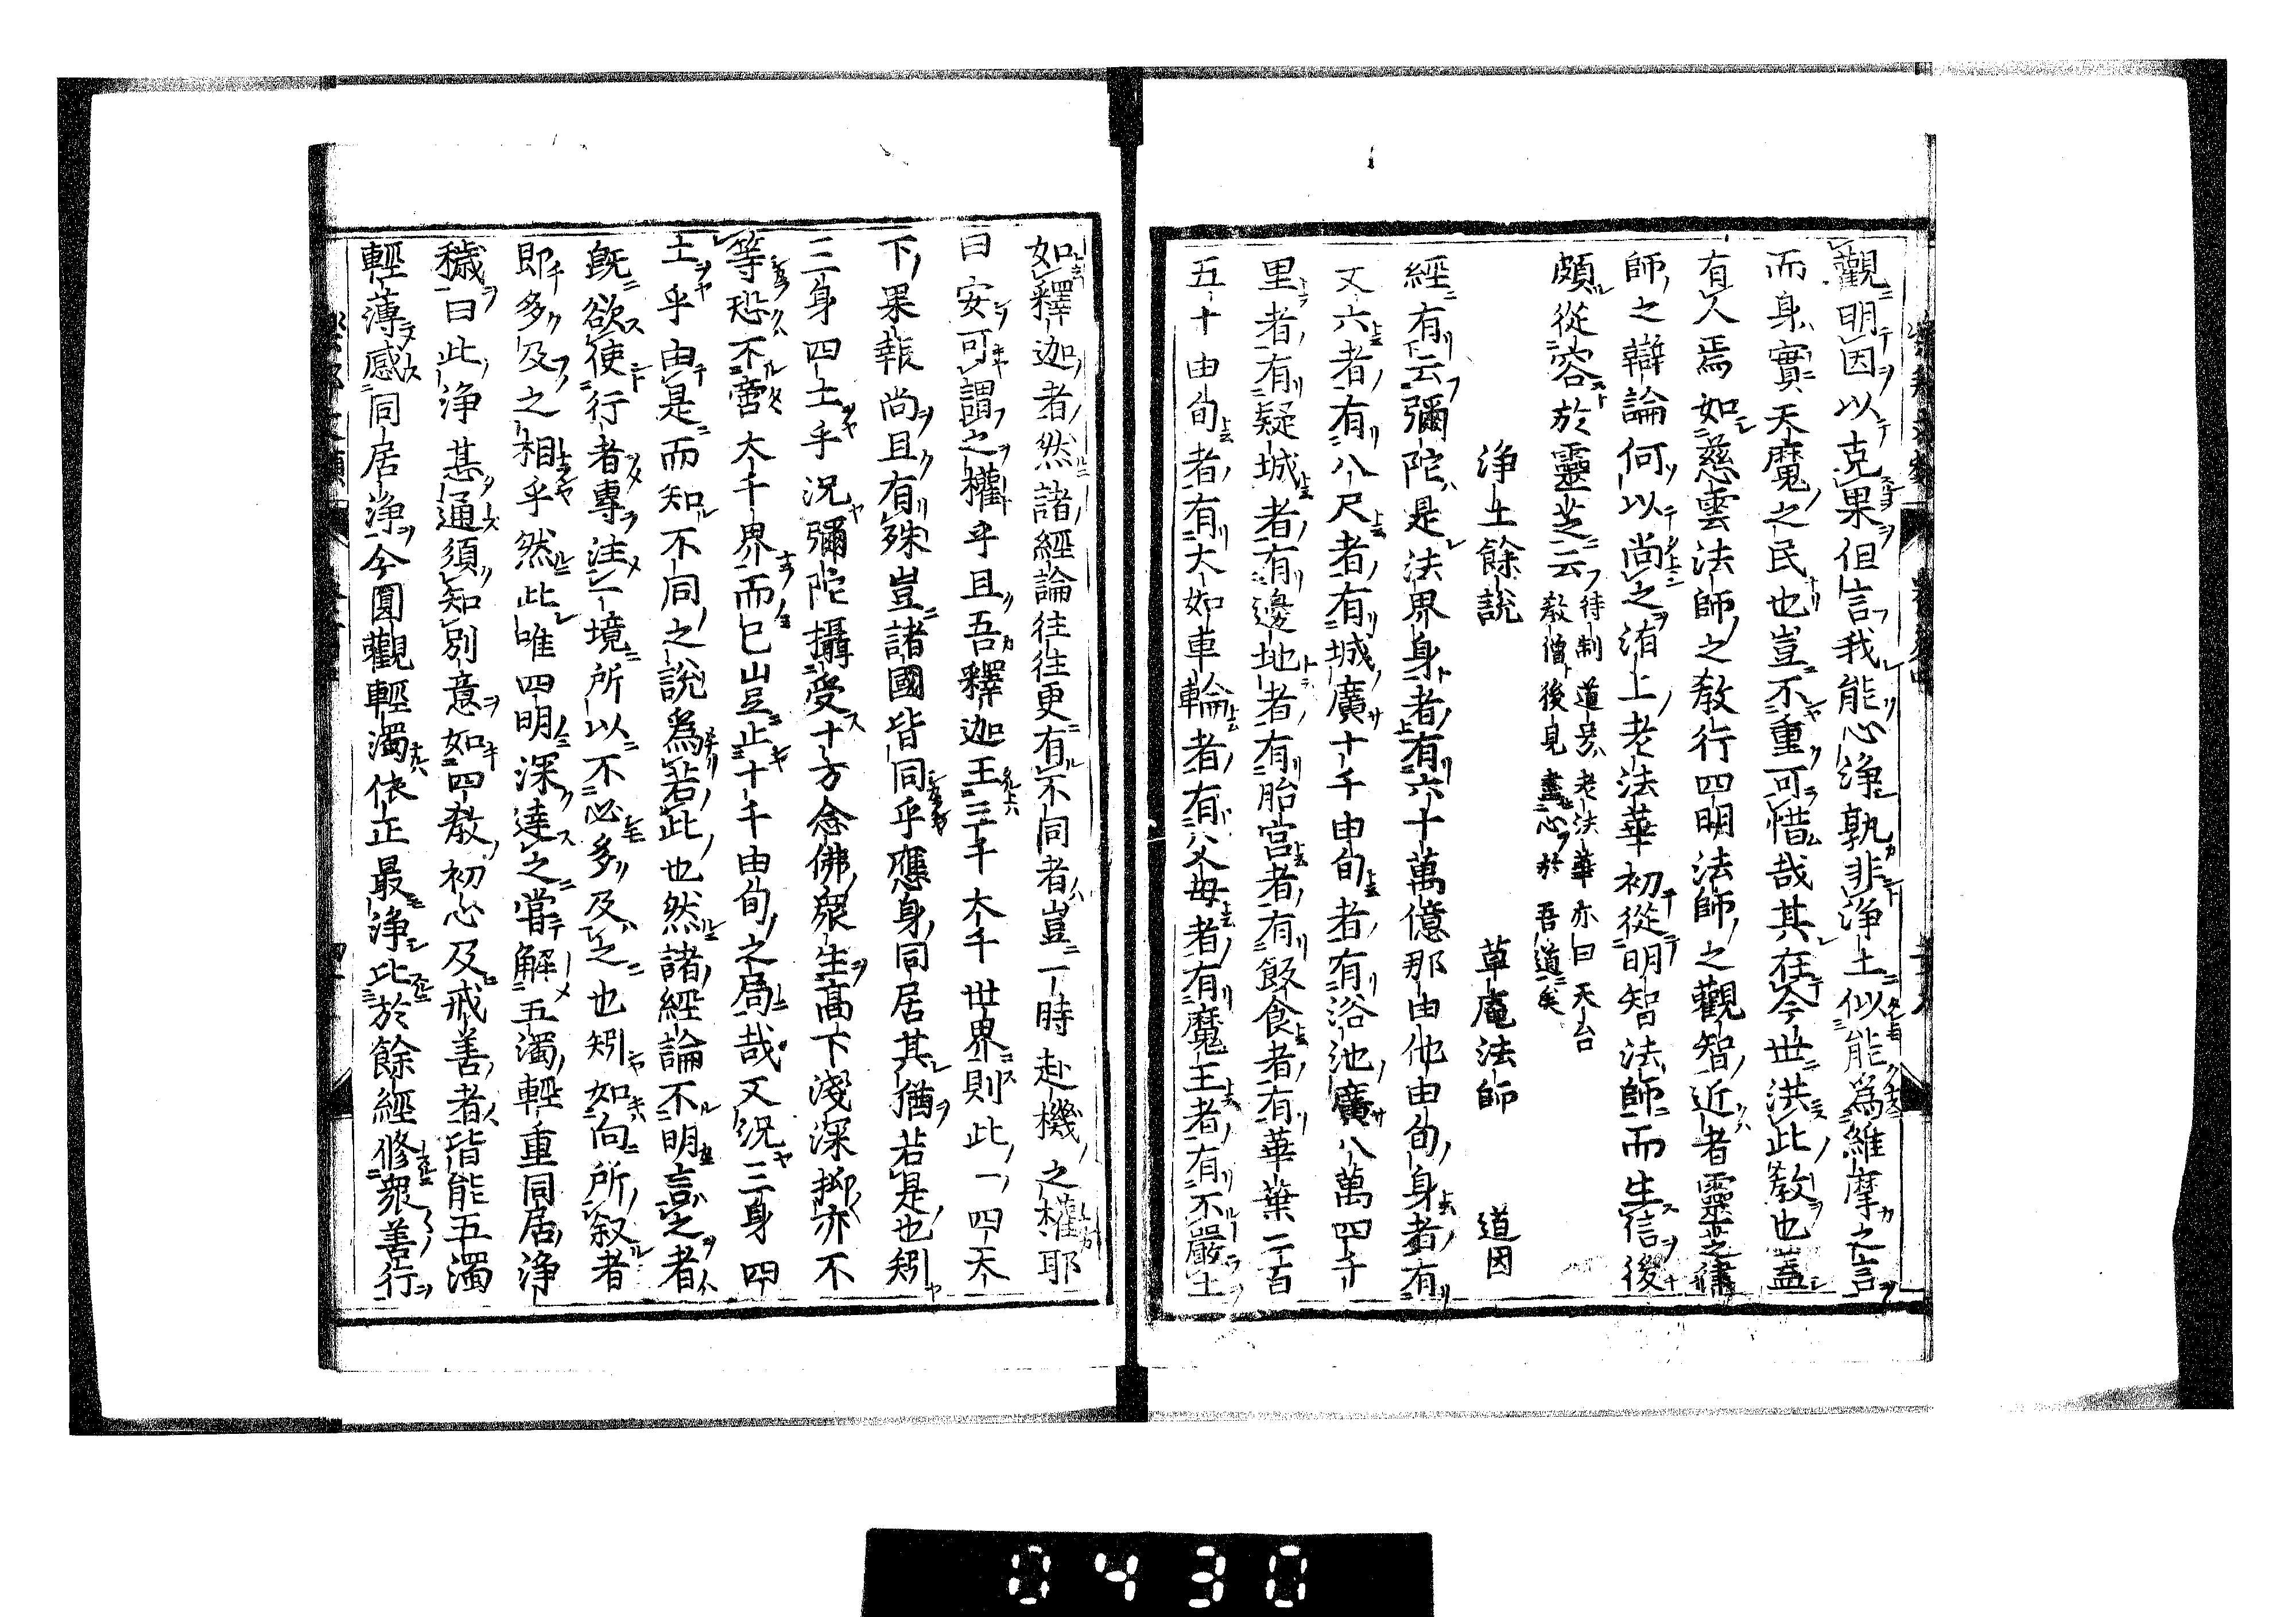 觀明因以克果但言我能心淨孰非淨土似能爲維摩之言
而身實天魔之民也豈不重可惜哉其在今世洪此敎也蓋
有人焉如慈雲法師之敎行四明法師之觀智近者靈芝之律
師之辯論何以尚之洧上老法華初從明智法師而生信後
頗從容於靈芝云待制道号老法華亦曰天台
敎僧後見盡心於吾道矣
淨土餘說
草庵法師
道因
經有云彌陀是法界身者有六十萬億那由他由旬身者有
丈六者有八尺者有城廣十千由旬者有浴池廣八萬四千
里者有疑城者有邊地者有胎宮者有飯食者有華葉二百
五十由旬者有大如車輪者有父母者有魔王者有不嚴土
如釋迦者然諸經論往往更有不同者豈一時赴機之權耶
曰安可謂之權乎且吾釋迦王三千大千世界則此一四天
下果報尚且有殊豈諸國皆同乎應身同居其猶若是也矧
三身四土乎況彌陀攝受十方念佛衆生高下淺深抑亦不
等恐不啻大千界而已豈止十千由旬之局哉又況三身四
土乎由是而知不同之說爲若此也然諸經論不明言之者
旣欲使行者專注一境所以不必多及之也矧如向所叙者
卽多及之相乎然此唯四明深達之當解五濁輕重同居淨
穢曰此淨甚通須知別意如四敎初心及戒善者皆能五濁
輕薄感同居淨今圓觀輕濁依正最淨此於餘經修衆善行
0430